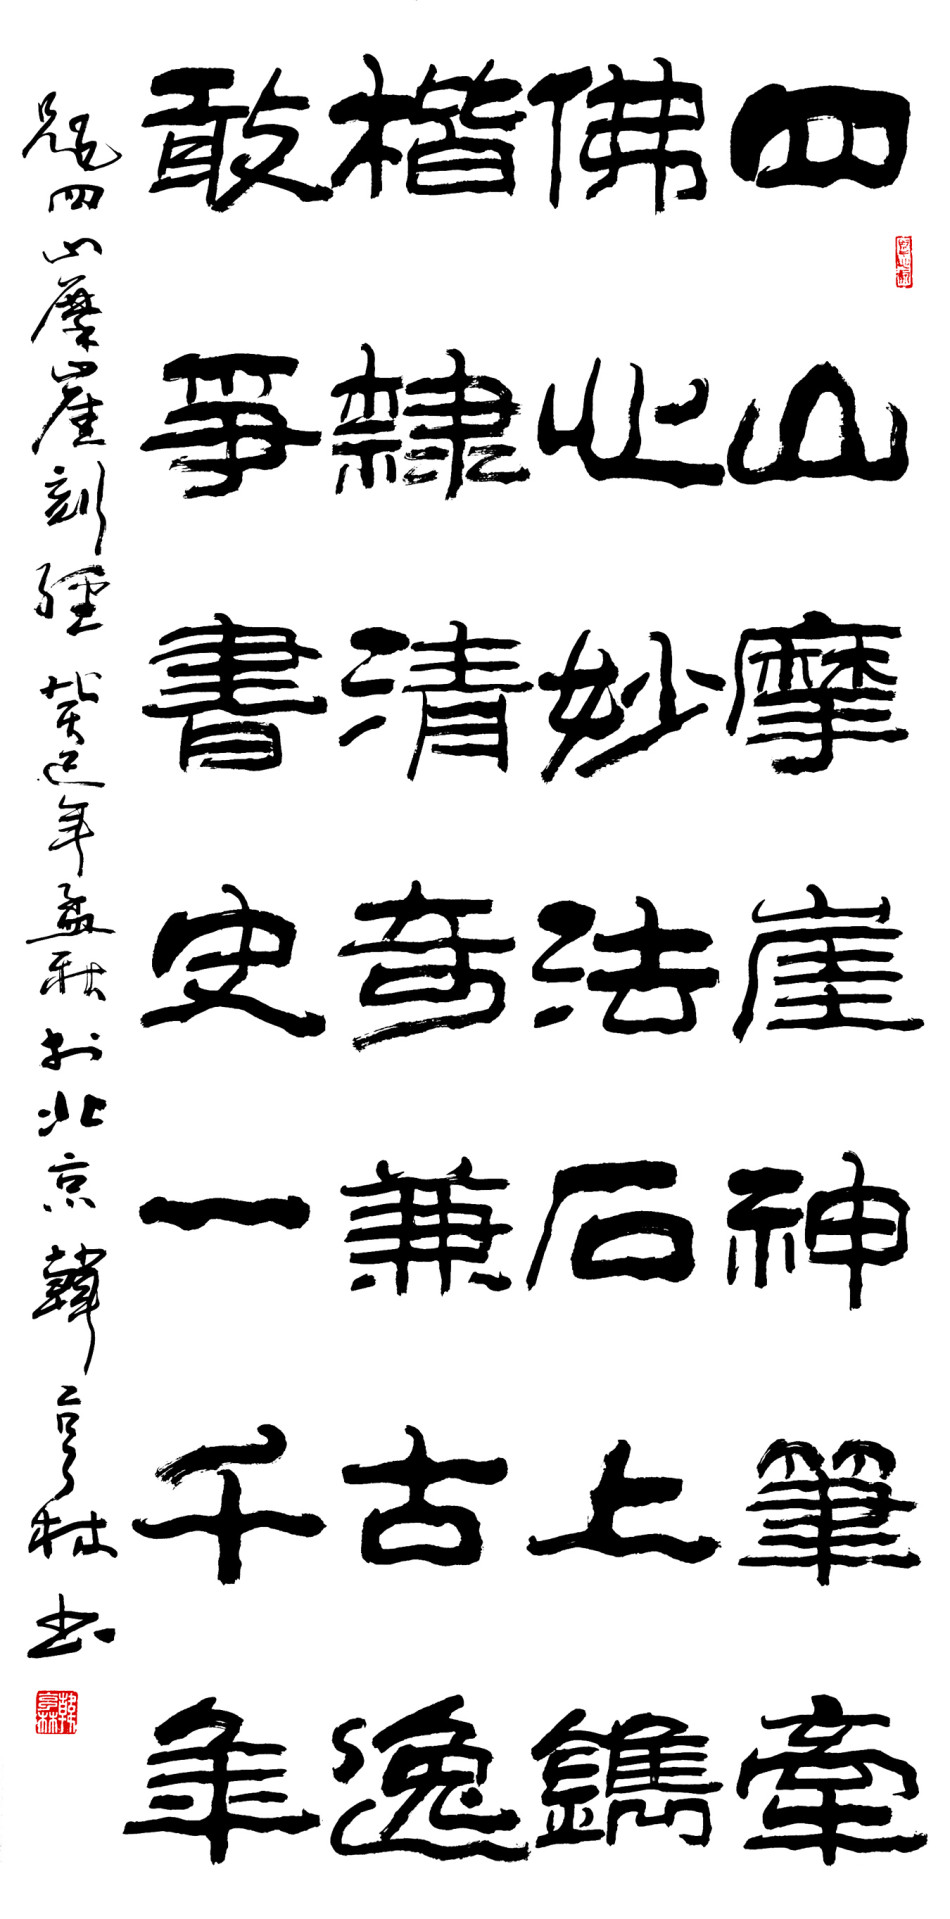 四山摩崖神筆牽
佛心妙法石上鐫
楷隸清奇兼古逸
敢爭書史一千年
題四山摩崖刻經 癸巳年孟秋於北京 韓亨林書
韓亨林